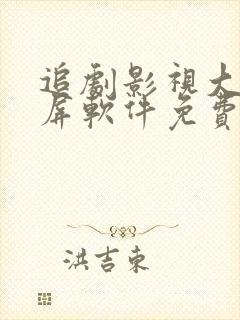 追劇影視大
屏軟件免費
洪吉東